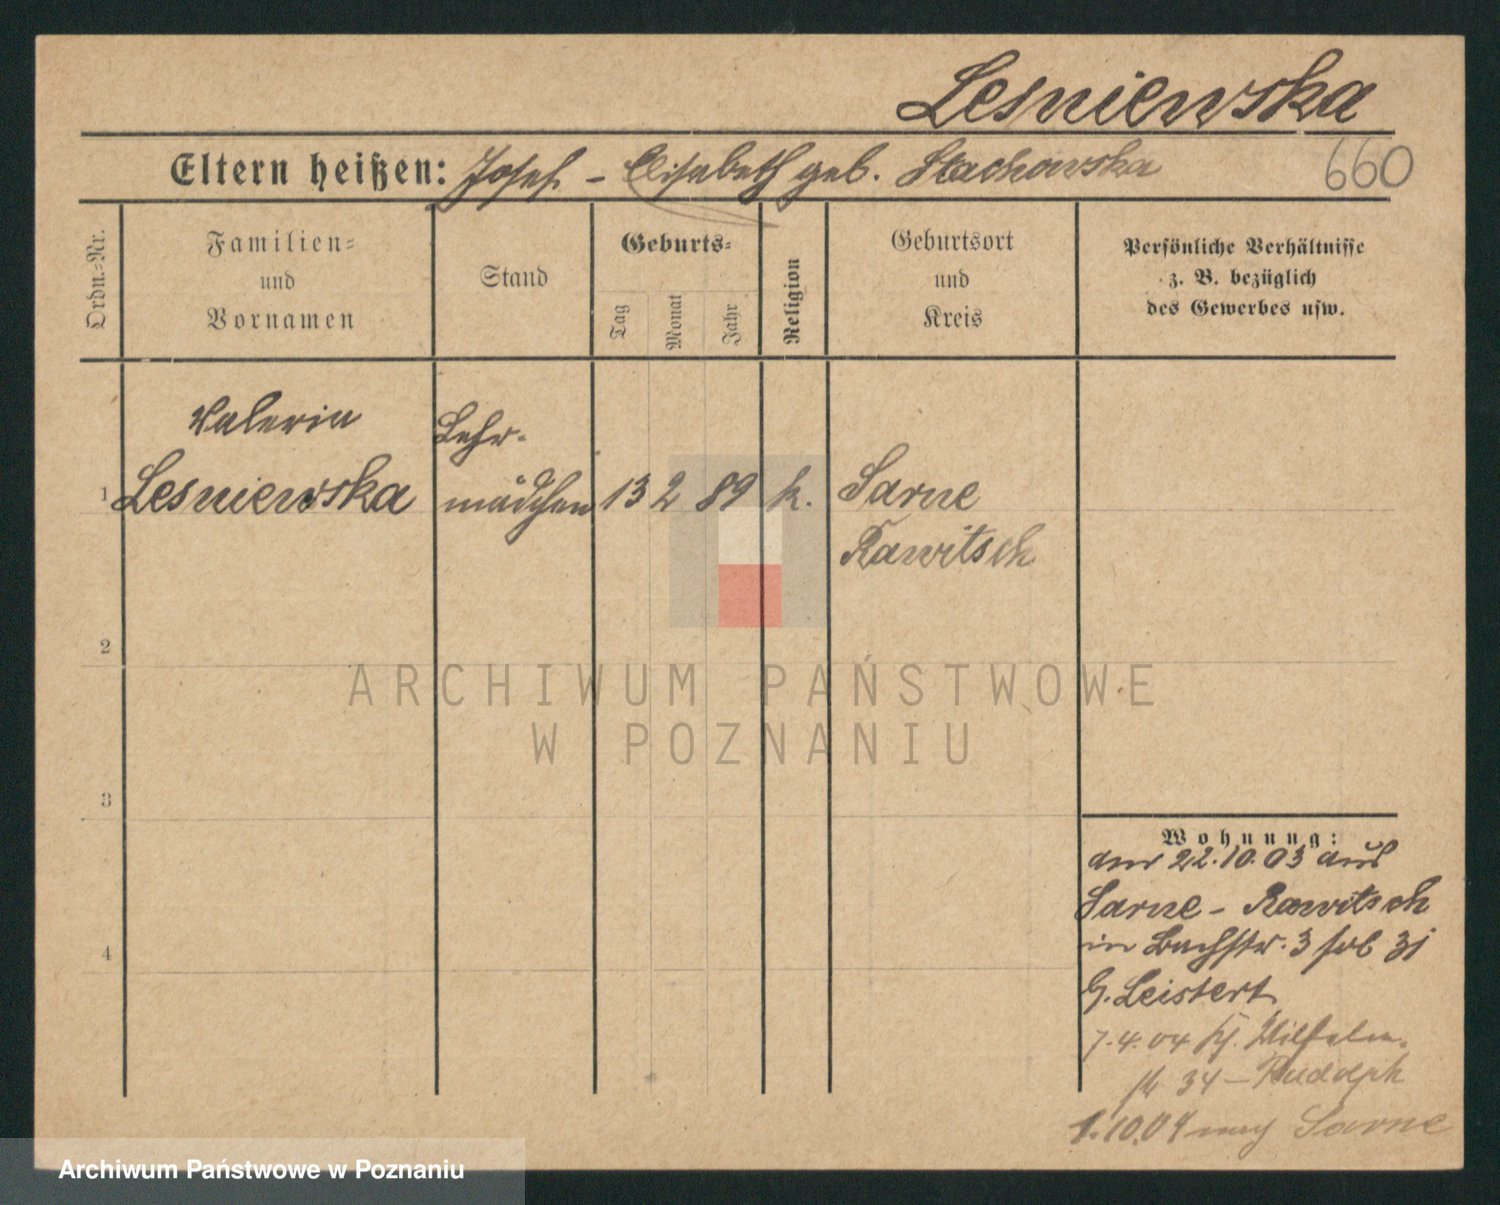 Lesniewska
Eltern heißen: Josef - Elisabeth geb. Stachowska
660
Ordn.-Nr.
Familien-
und
Vornamen
Stand
Geburts-
Tag
Monat
Jahr
Religion
Geburtsort
und
Kreis
Persönliche Verhältnisse
z. B. bezüglich
des Gewerbes usw.
Valeria
Lehr-
1 Lesniewska mädchen 13 2 89 k. Sarne
Rawitsch
2
ARCHIWUM PAŃSTWOWE
W POZNANIU
3
Wohnung:
am 22.10.03 aus
Sarne - Rawitsch
in Bachstr. 3
4
G. Leistert
7.4.04 Wilhelm-
34 - Rudolph
1.10.04 nach Sarne
Archiwum Państwowe w Poznaniu